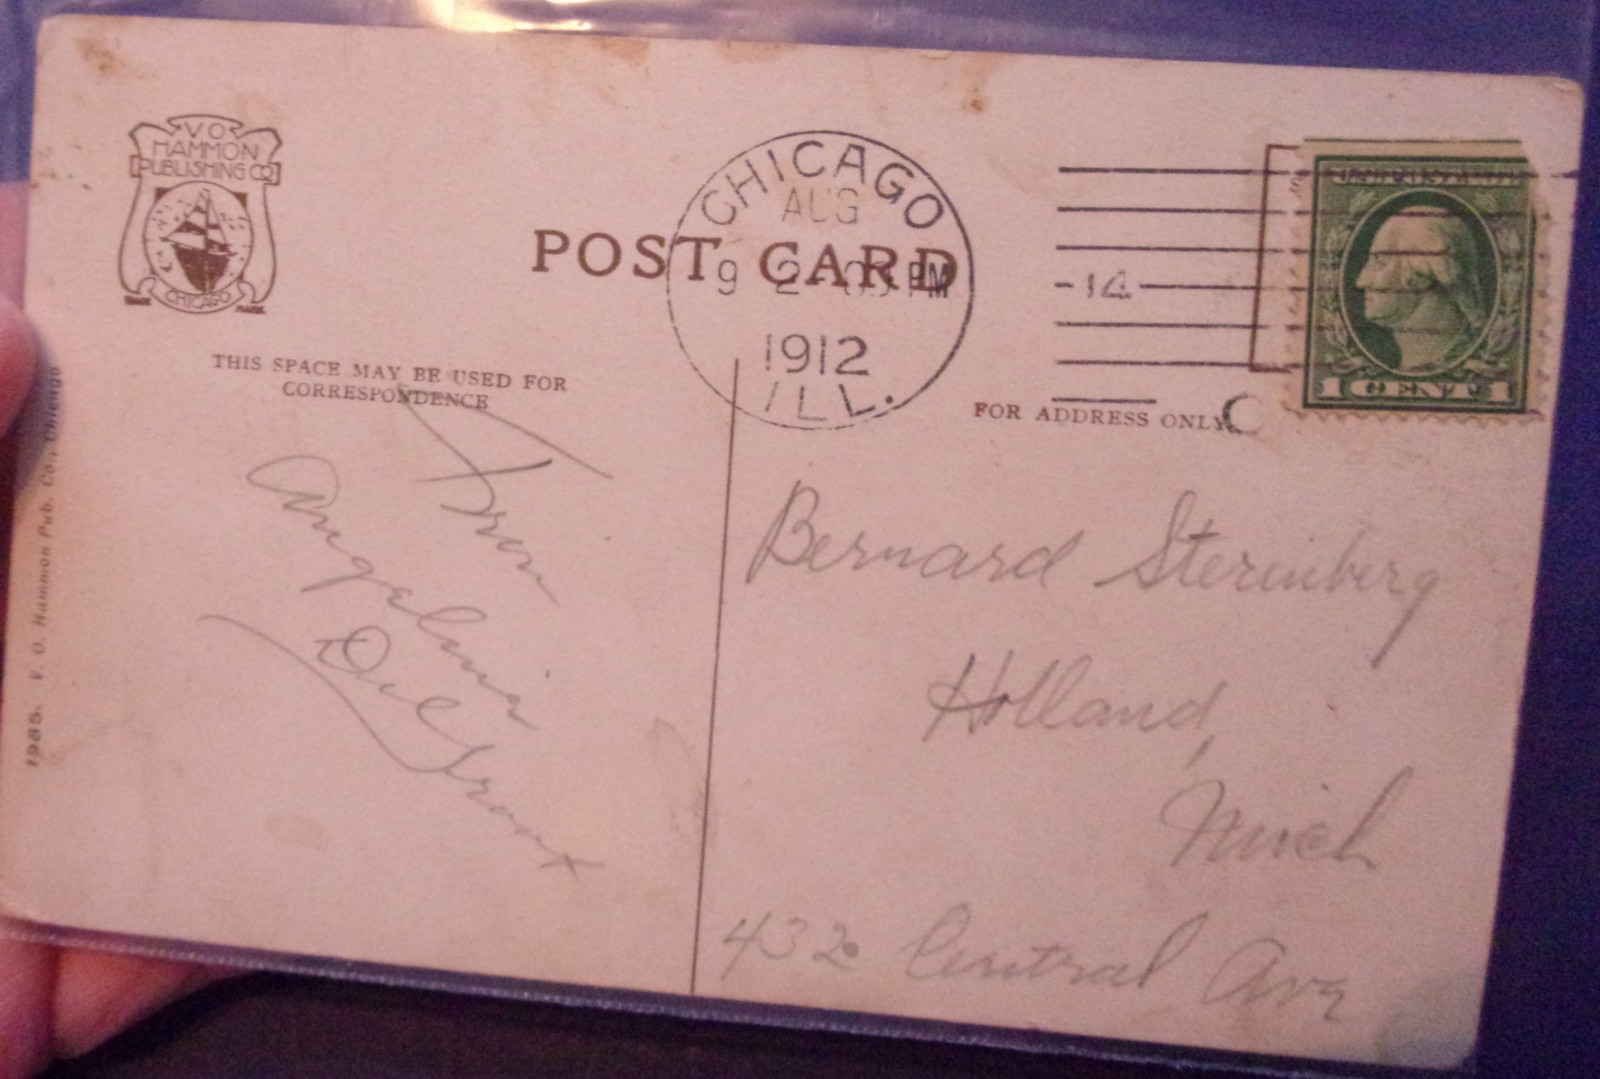 V O
HAMMON
PUBLISHING CO
CHICAGO
TRADE MARK
POST CARD
CHICAGO
AUG
9 2- PM
1912
ILL.
14
1 CENT 1
THIS SPACE MAY BE USED FOR
CORRESPONDENCE
FOR ADDRESS ONLY.
From
Angeline
De Groot
Bernard Sterenberg
Holland,
Mich
432 Central Ave
1985. V. O. Hammon Pub. Co., Chicago